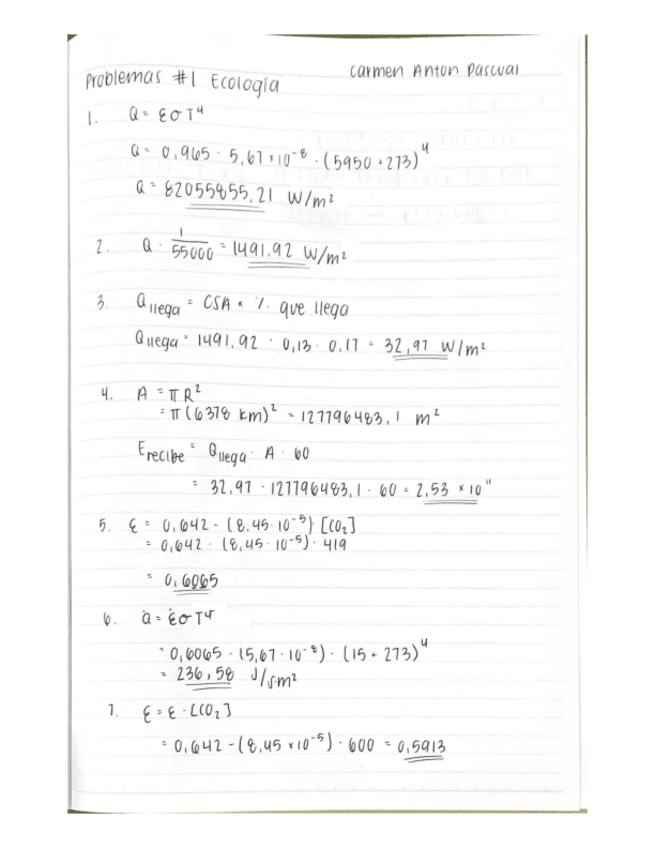 Problemas #1 Ecología
Carmen Anton Pascual
1. Q = εσT⁴
Q = 0,965 · 5,67 × 10⁻⁸ · (5950 + 273)⁴
Q = 82055855,21 W/m²
2. Q · 1/55000 = 1491,92 W/m²
3. Qllega = CSA × % que llega
Qllega = 1491,92 · 0,13 · 0,17 = 32,97 W/m²
4. A = πR²
= π(6378 km)² = 127796483,1 m²
Erecibe = Qllega · A · 60
= 32,97 · 127796483,1 · 60 = 2,53 × 10¹¹
5. ε = 0,642 - (8,45·10⁻⁵) [CO₂]
= 0,642 - (8,45·10⁻⁵) · 419
= 0,6065
6. Q = εσT⁴
= 0,6065 · (5,67·10⁻⁸) · (15 + 273)⁴
= 236,58 J/sm²
7. ε = ε · [CO₂]
= 0,642 - (8,45 × 10⁻⁵) · 600 = 0,5913